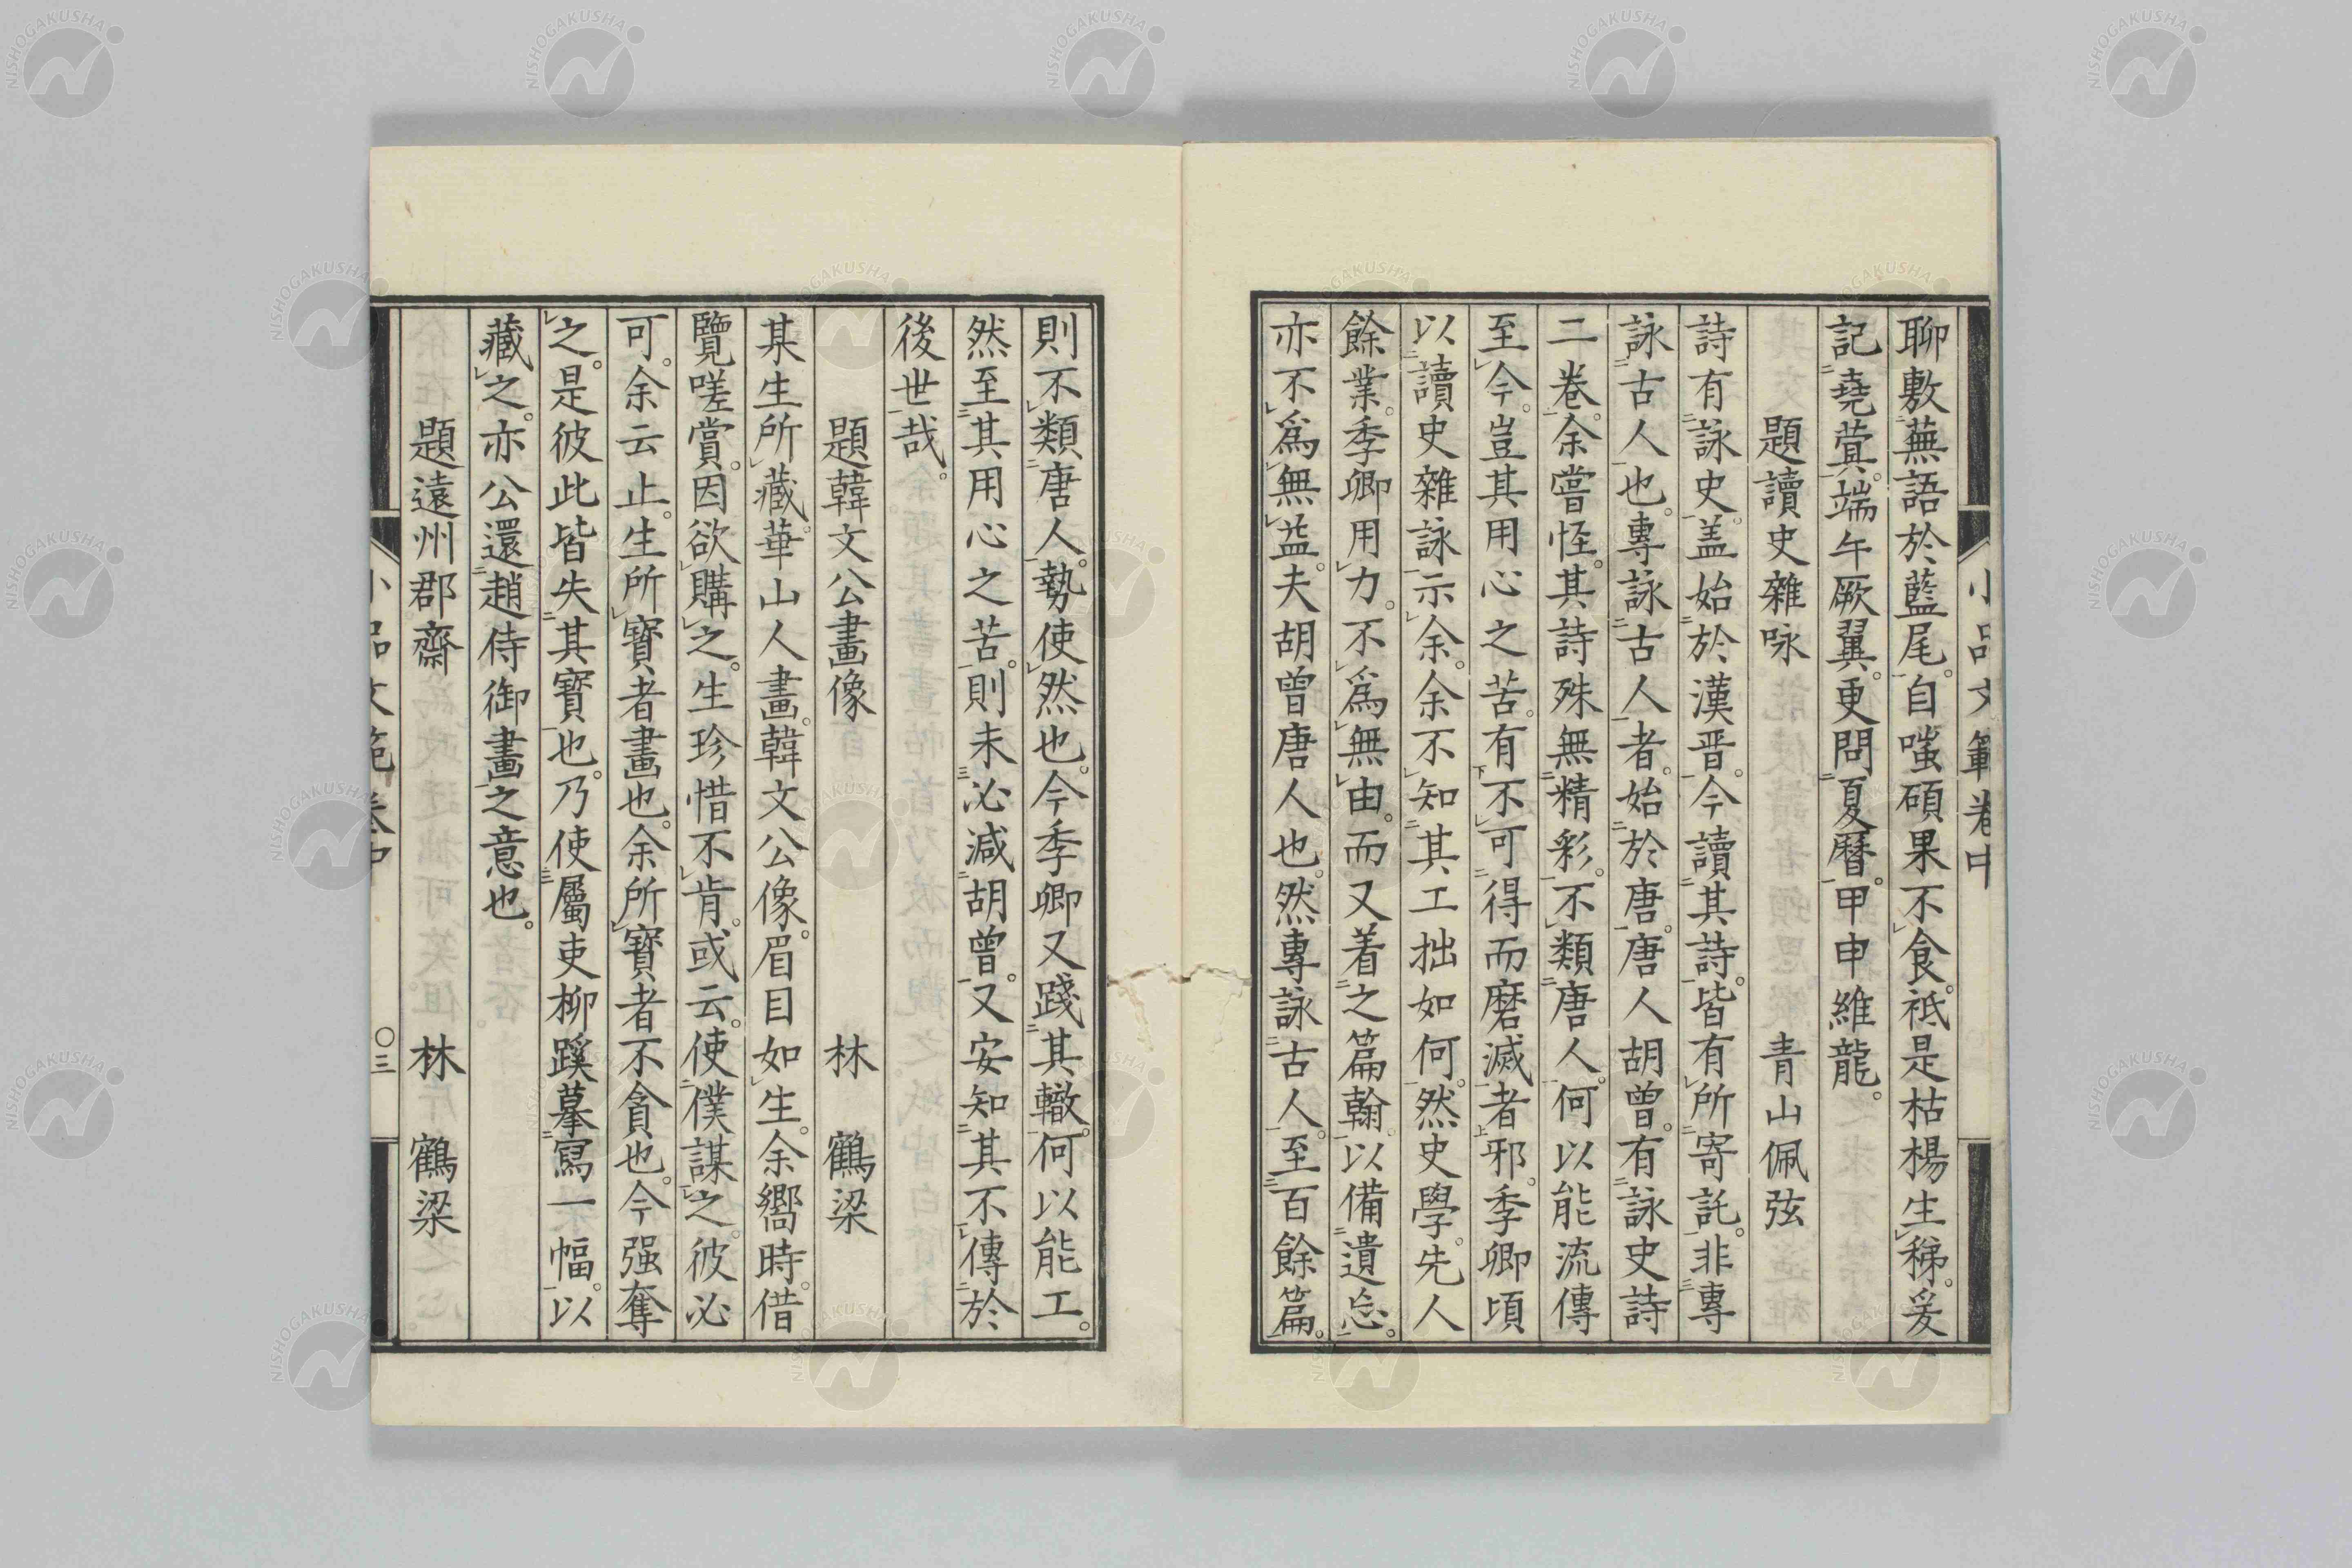 小品文範卷中
聊敷蕪語於藍尾。自嗤碩果不食。祗是枯楊生稊。爰
記堯蓂。端午厥翼。更問夏曆。甲申維龍。
題讀史雜咏 青山佩弦
詩有詠史。盖始於漢晋。今讀其詩。皆有所寄託。非專
詠古人也。專詠古人者。始於唐。唐人胡曾。有詠史詩
二卷。余嘗怪。其詩殊無精彩。不類唐人。何以能流傳
至今。豈其用心之苦。有不可得而磨滅者邪。季卿頃
以讀史雜詠示余。余不知其工拙如何。然史學。先人
餘業。季卿用力。不爲無由。而又着之篇翰。以備遺忘。
亦不爲無益。夫胡曾唐人也。然專詠古人。至百餘篇。
則不類唐人。勢使然也。今季卿又踐其轍。何以能工。
然至其用心之苦。則未必減胡曾。又安知其不傳於
後世哉。
題韓文公畫像 林 鶴梁
某生所藏華山人畫。韓文公像。眉目如生。余嚮時。借
覽嗟賞。因欲購之。生珍惜不肯。或云。使僕謀之。彼必
可。余云止。生所寶者畫也。余所寶者不貪也。今强奪
之。是彼此皆失其寶也。乃使屬吏柳蹊摹寫一幅。以
藏之。亦公還趙侍御畫之意也。
題遠州郡齋 林 鶴梁
小品文範卷中 〇三
NISHOGAKUSHA